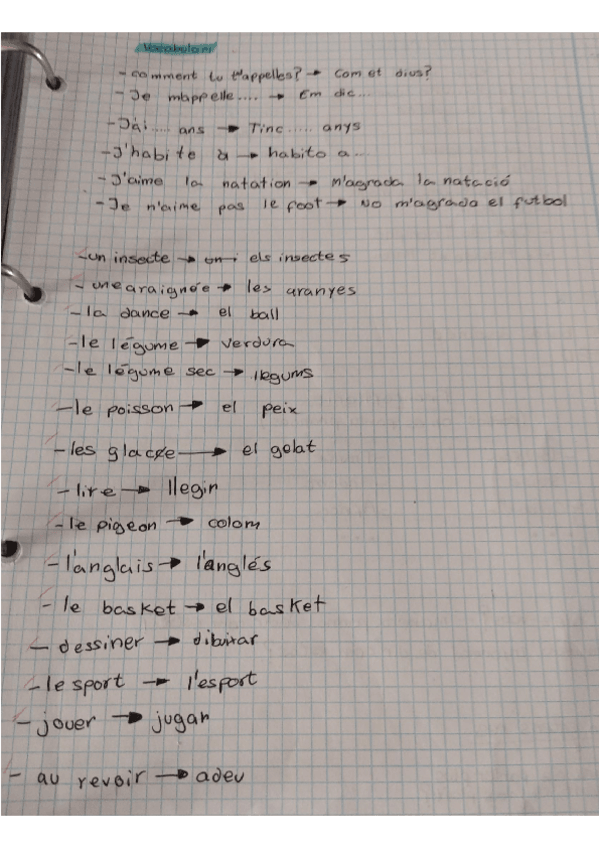 Vocabulari
- comment tu t'appelles? → Com et dius?
- Je m'appelle.... → Em dic...
- J'ai.... ans → Tinc..... anys
- J'habite à → habito a...
- J'aime la natation → m'agrada la natació
- Je n'aime pas le foot → No m'agrada el futbol
- un insecte → els insectes
- une araignée → les aranyes
- la dance → el ball
- le légume → verdura
- le légume sec → llegums
- le poisson → el peix
- les glace → el gelat
- lire → llegir
- le pigeon → colom
- l'anglais → l'anglés
- le basket → el basket
- dessiner → dibuixar
- le sport → l'esport
- jouer → jugar
- au revoir → adeu